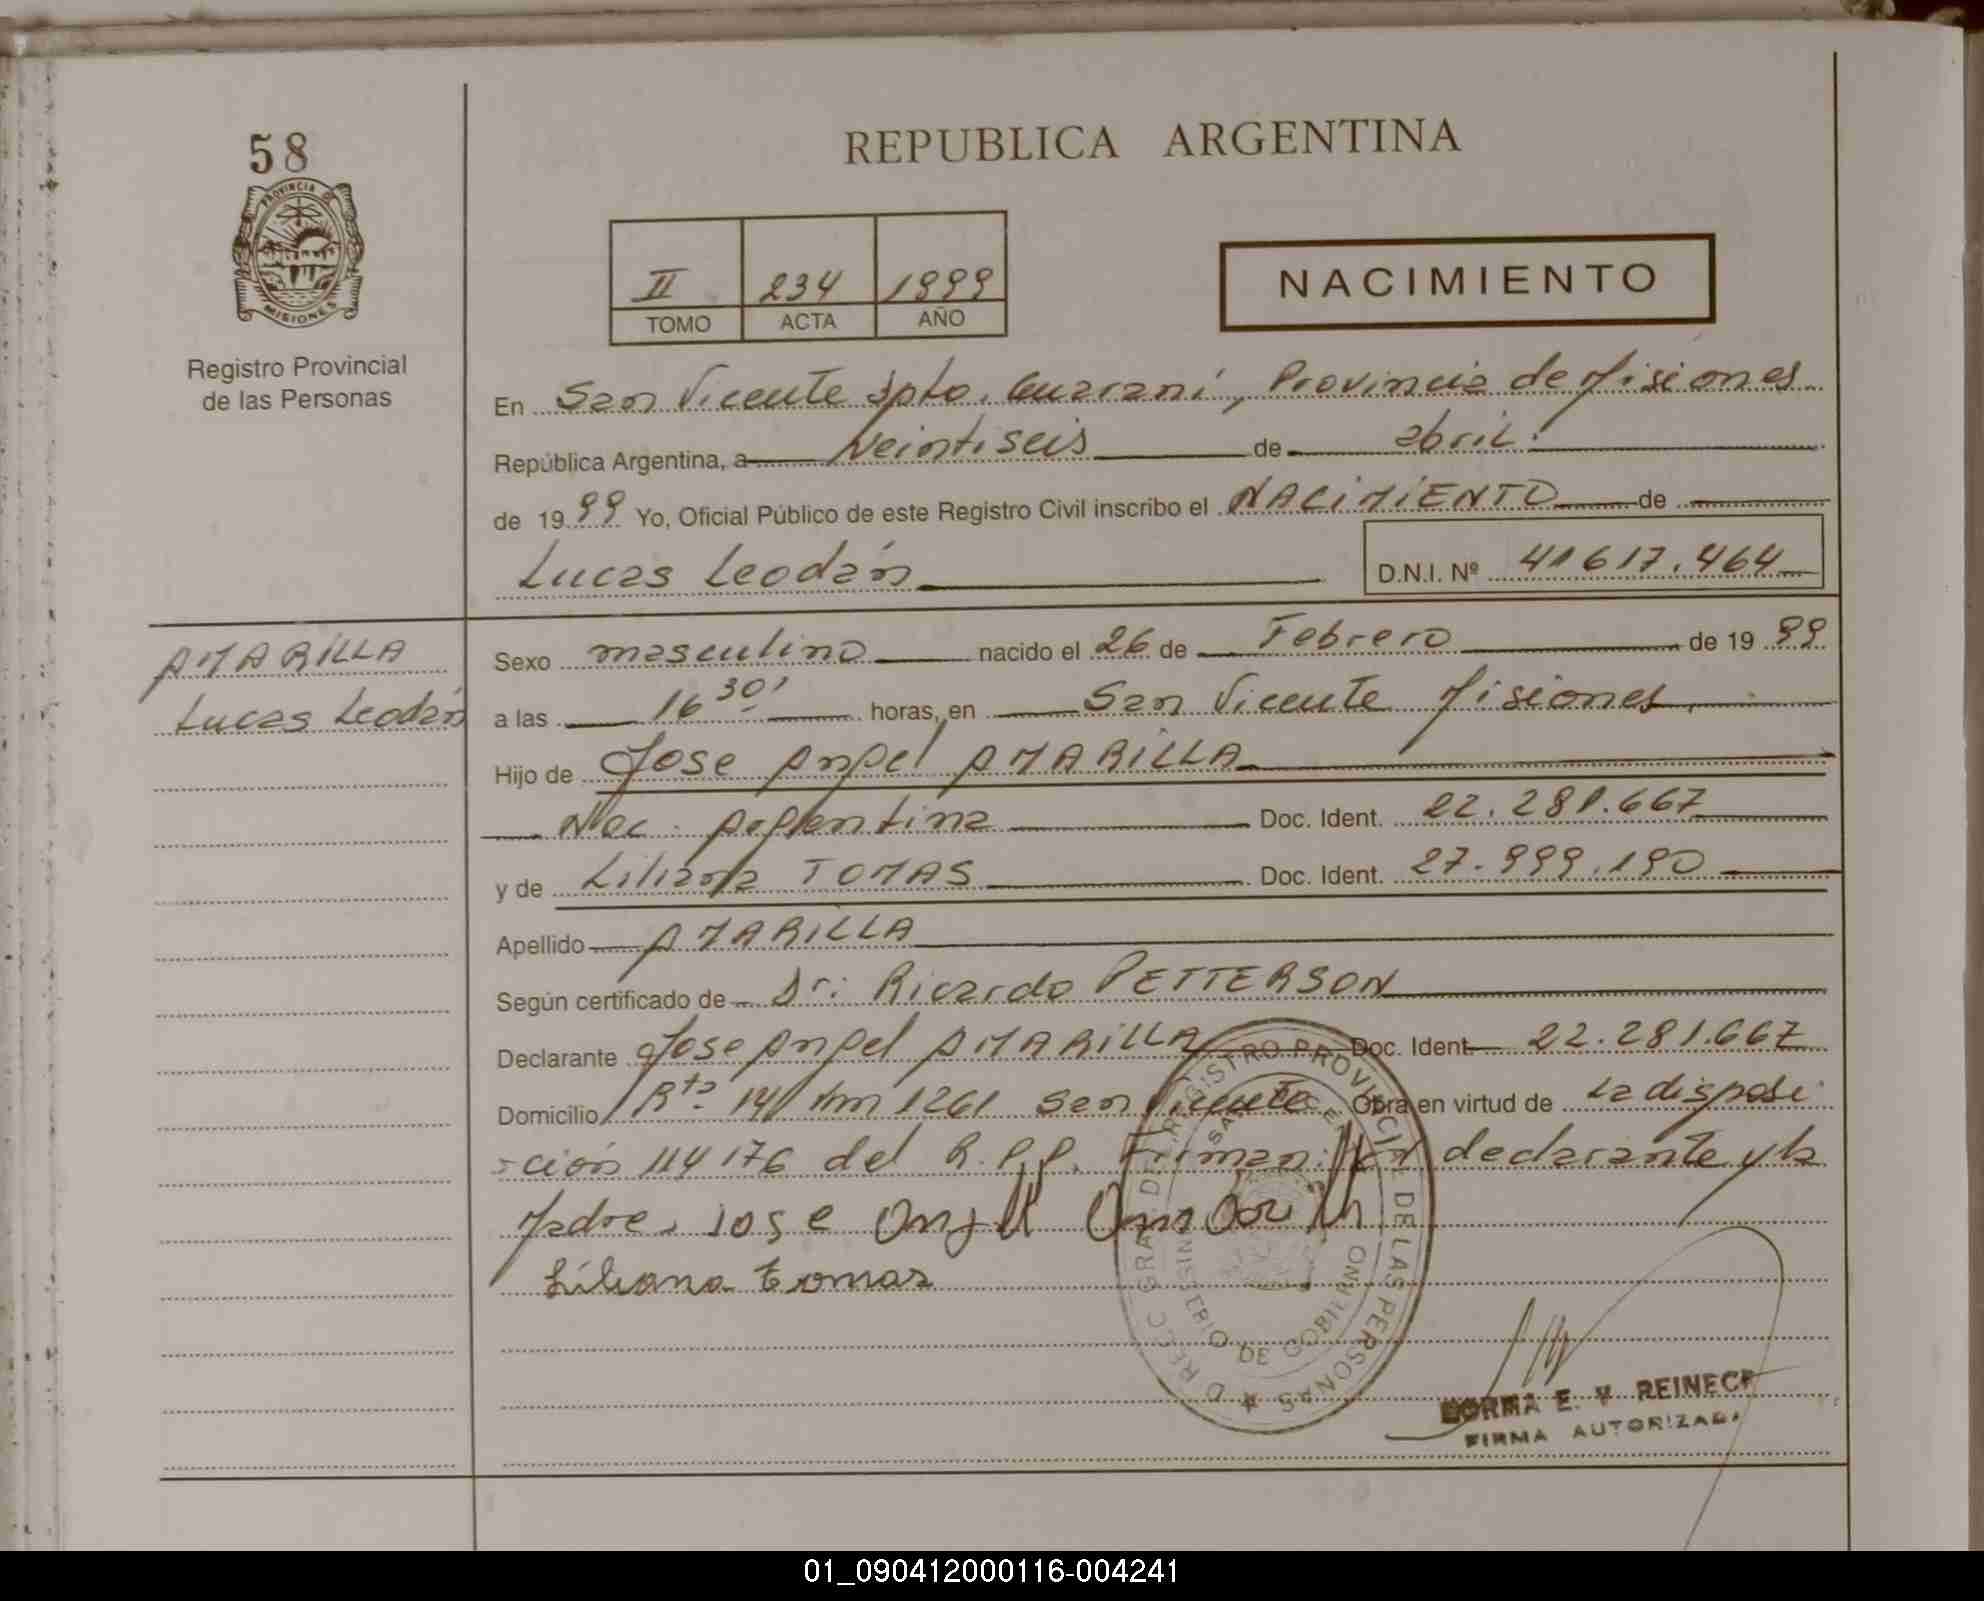 58
PROVINCIA DE
MISIONES
Registro Provincial
de las Personas
REPUBLICA ARGENTINA
II 234 1999
TOMO ACTA AÑO
NACIMIENTO
En San Vicente Dpto. Guaraní, Provincia de Misiones
República Argentina, a Veintiseis de abril.
de 1999 Yo, Oficial Público de este Registro Civil inscribo el NACIMIENTO de
Lucas Leodán D.N.I. Nº 41617.464
AMARILLA
Lucas Leodán
Sexo masculino nacido el 26 de Febrero de 1999
a las 16 30' horas, en San Vicente Misiones
Hijo de Jose Angel AMARILLA
Nac. Argentina Doc. Ident. 22.281.667
y de Liliana TOMAS Doc. Ident. 27.999.190
Apellido AMARILLA
Según certificado de Dr. Ricardo PETTERSON
Declarante Jose Angel AMARILLA Doc. Ident 22.281.667
Domicilio Rta. 14 km 1261 San Vicente Obra en virtud de la disposi
ción 114/76 del R.P.P. Firman: el declarante y la
Madre. Jose Angel Amarilla
Liliana tomas
REGISTRO PROVINCIAL DE LAS PERSONAS
MINISTERIO DE GOBIERNO
NORMA E. V. REINECK
FIRMA AUTORIZADA
01_090412000116-004241